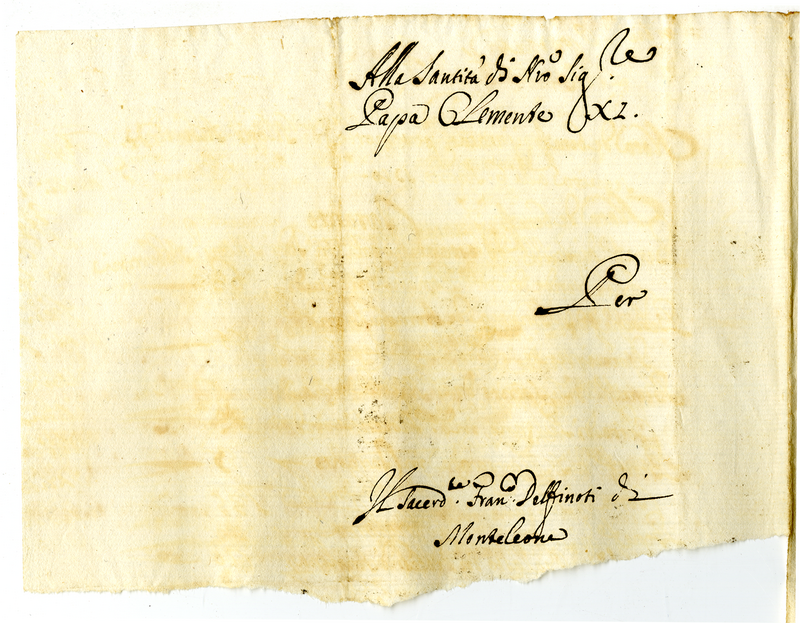 Alla Santità di Nro Sigre
Papa Clemente XI.
Per
Il Sacerdte. Franco. Delfinoti di
Monteleone